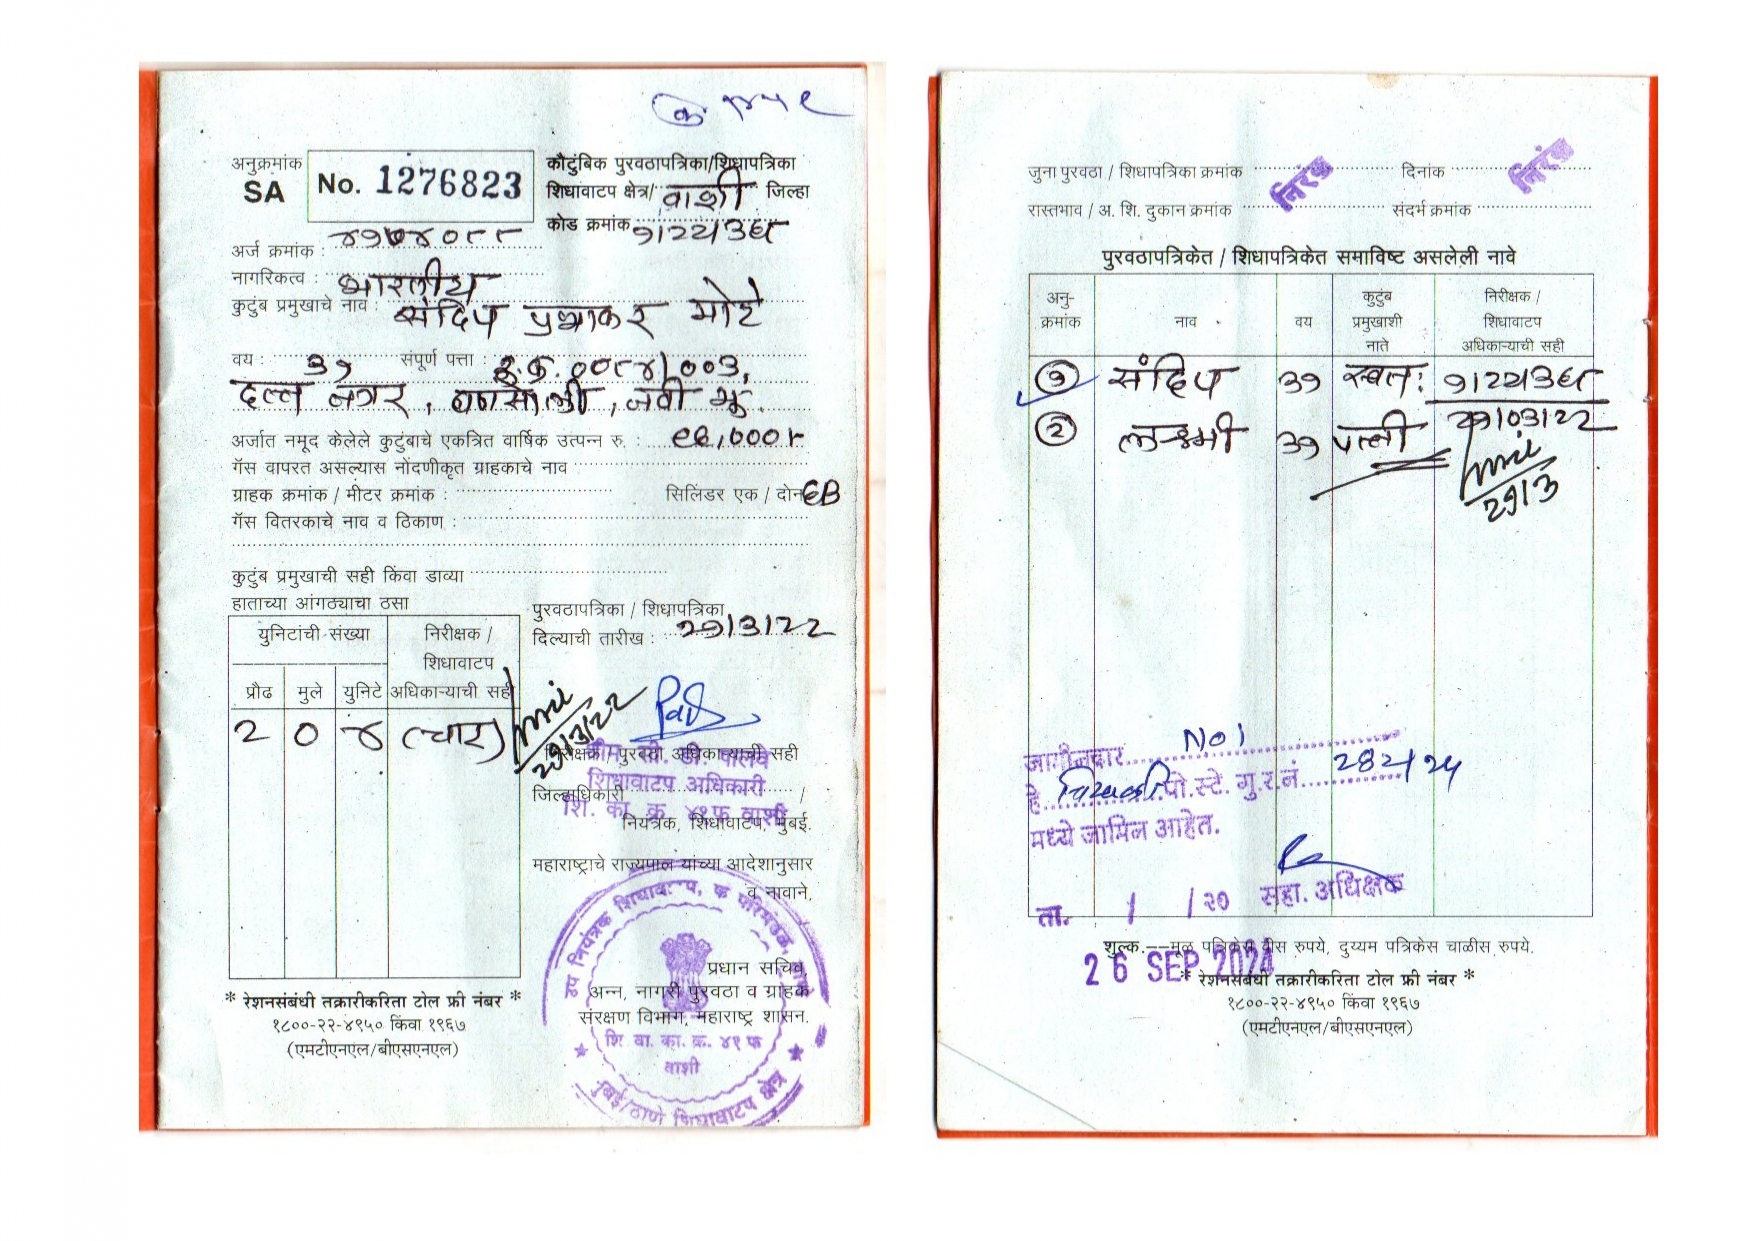 अनुक्रमांक
SA No. 1276823
कौटुंबिक पुरवठापत्रिका/शिधापत्रिका
शिधावाटप क्षेत्र/ वाशी जिल्हा
कोड क्रमांक
अर्ज क्रमांक :
नागरिकत्व : भारतीय
कुटुंब प्रमुखाचे नाव : संदिप प्रभाकर मोटे
वय : ३१ संपूर्ण पत्ता :
दत्त नगर,
अर्जात नमूद केलेले कुटुंबाचे एकत्रित वार्षिक उत्पन्न रु. :
गॅस वापरत असल्यास नोंदणीकृत ग्राहकाचे नाव
ग्राहक क्रमांक / मीटर क्रमांक : सिलिंडर एक / दोन
गॅस वितरकाचे नाव व ठिकाण :
कुटुंब प्रमुखाची सही किंवा डाव्या
हाताच्या आंगठ्याचा ठसा
पुरवठापत्रिका / शिधापत्रिका
दिल्याची तारीख : २१।३।२२
युनिटांची संख्या निरीक्षक /
शिधावाटप
प्रौढ मुले युनिटे अधिकाऱ्याची सही
२ ० ४ (चार)
२१।३।२२
निरीक्षक / पुरवठा अधिकाऱ्याची सही
शिधावाटप अधिकारी
जिल्हाधिकारी /
शि. का. क्र. ४१फ वाशी
नियंत्रक, शिधावाटप, मुंबई.
महाराष्ट्राचे राज्यपाल यांच्या आदेशानुसार
व नावाने,
प्रधान सचिव,
अन्न, नागरी पुरवठा व ग्राहक
संरक्षण विभाग, महाराष्ट्र शासन.
शि. वा. का. क्र. ४१ फ
वाशी
* रेशनसंबंधी तक्रारीकरिता टोल फ्री नंबर *
१८००-२२-४९५० किंवा १९६७
(एमटीएनएल/बीएसएनएल)
जुना पुरवठा / शिधापत्रिका क्रमांक निरंक दिनांक निरंक
रास्तभाव / अ. शि. दुकान क्रमांक संदर्भ क्रमांक
पुरवठापत्रिकेत / शिधापत्रिकेत समाविष्ट असलेली नावे
अनु-
क्रमांक नाव वय कुटुंब
प्रमुखाशी
नाते निरीक्षक /
शिधावाटप
अधिकाऱ्याची सही
१ संदिप ३१ स्वतः
२ लक्ष्मी ३१ पत्नी २१।०३।२२
२१।३
जामीनदार NO1
हे पो.स्टे. गु.र.नं. 282/24
मध्ये जामिन आहेत.
ता. / /२० सहा. अधिक्षक
शुल्क.—मूळ पत्रिकेस वीस रुपये, दुय्यम पत्रिकेस चाळीस रुपये.
26 SEP 2024
* रेशनसंबंधी तक्रारीकरिता टोल फ्री नंबर *
१८००-२२-४९५० किंवा १९६७
(एमटीएनएल/बीएसएनएल)